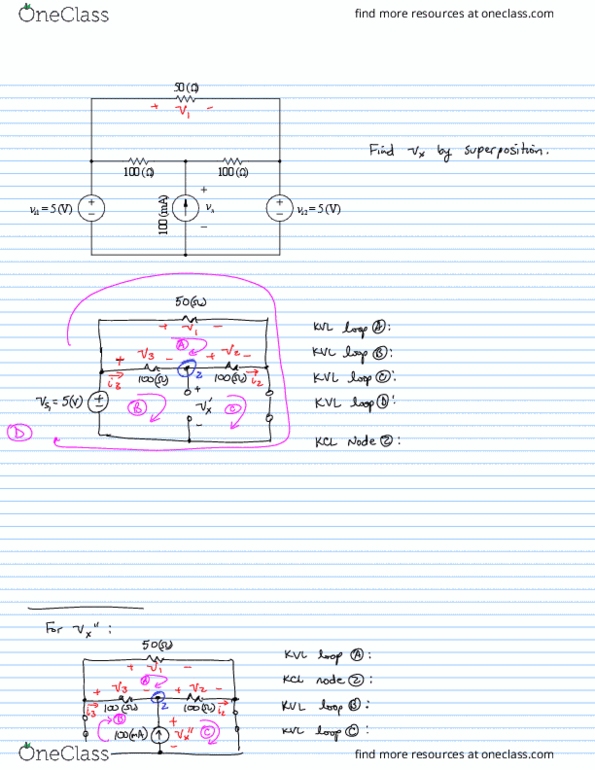 OneClass
find more resources at oneclass.com
50 (Ω)
+ V1 -
100 (Ω)
100 (Ω)
Find vx by superposition.
vs1 = 5 (V)
+
-
100 (mA)
+
vx
-
+
-
vs2 = 5 (V)
50(Ω)
+ V1 -
A
+ V3 - + V2 -
i3 100(Ω) 2 100(Ω) i2
Vs1 = 5(V)
+
-
B
+
Vx'
-
C
D
KVL loop A:
KVL loop B:
KVL loop C:
KVL loop D:
KCL Node 2:
For Vx":
50(Ω)
+ V1 -
A
+ V3 - + V2 -
i3 100(Ω) 2 100(Ω) i2
B
100(mA)
+
Vx"
-
C
KVL loop A:
KCL node 2:
KVL loop B:
KVL loop C:
OneClass
find more resources at oneclass.com